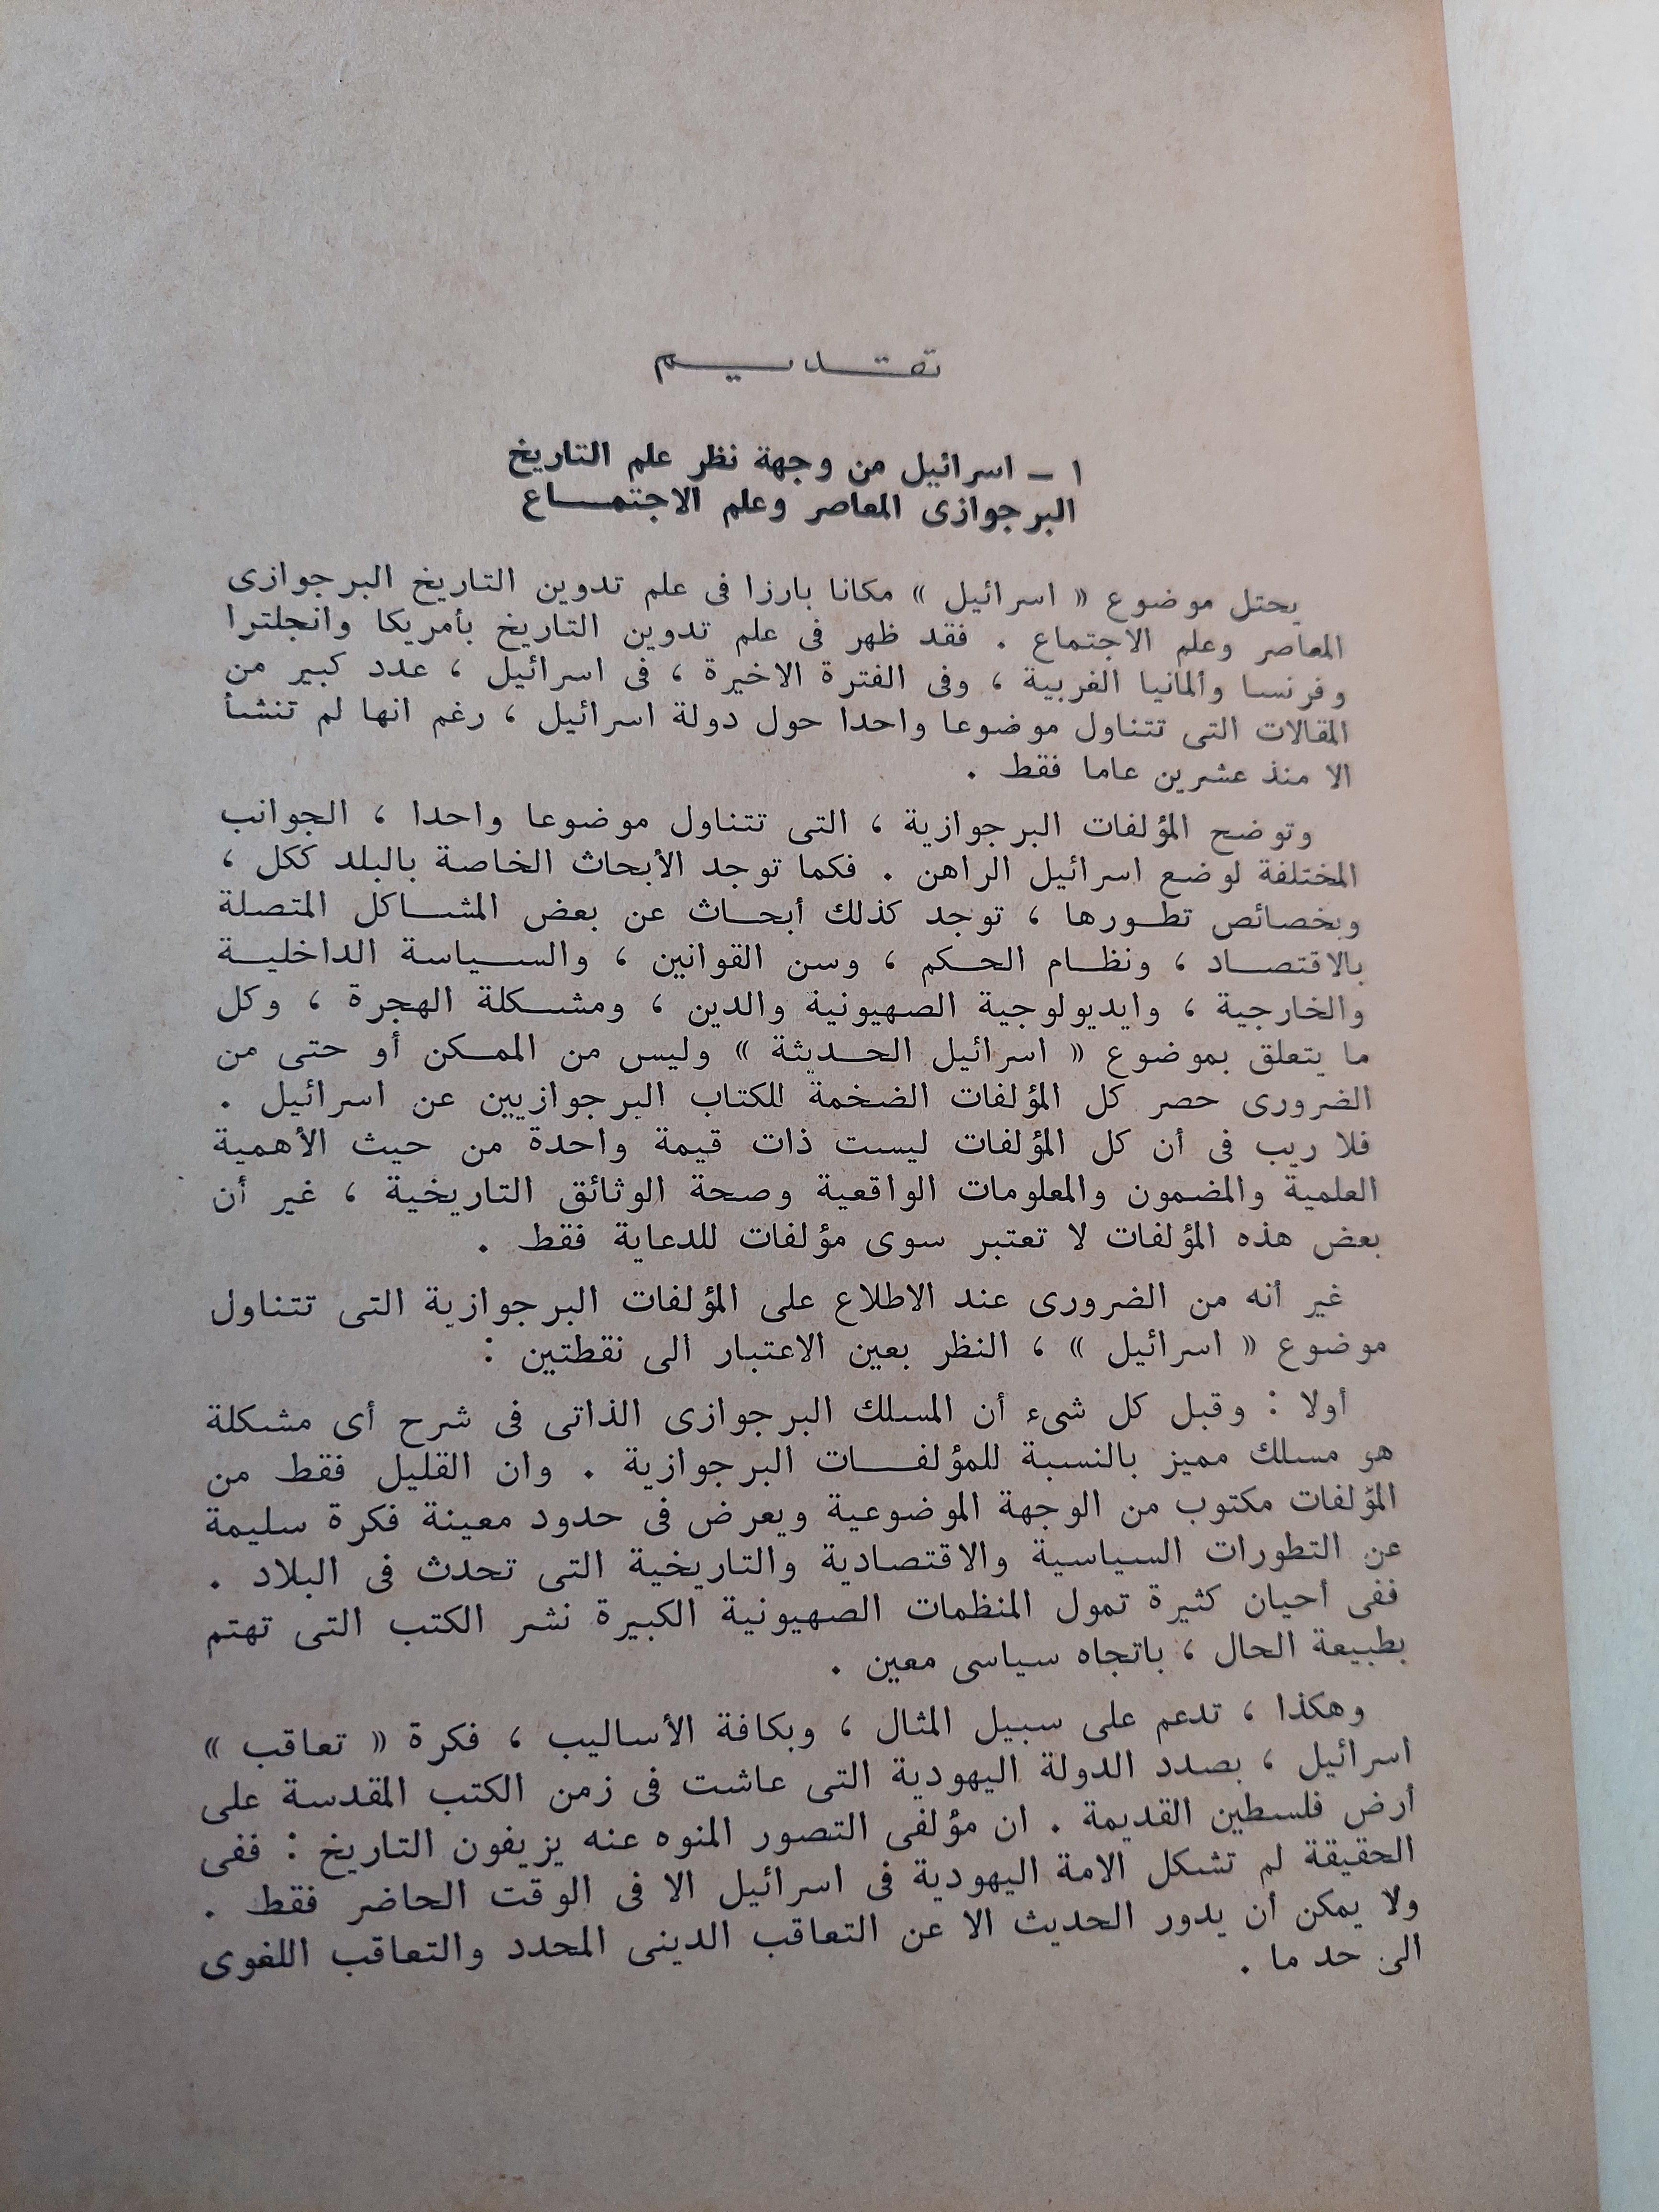 تقديم
١ - اسرائيل من وجهة نظر علم التاريخ
البرجوازى المعاصر وعلم الاجتماع
يحتل موضوع « اسرائيل » مكانا بارزا فى علم تدوين التاريخ البرجوازى
المعاصر وعلم الاجتماع . فقد ظهر فى علم تدوين التاريخ بأمريكا وانجلترا
وفرنسا والمانيا الغربية ، وفى الفترة الاخيرة ، فى اسرائيل ، عدد كبير من
المقالات التى تتناول موضوعا واحدا حول دولة اسرائيل ، رغم انها لم تنشأ
الا منذ عشرين عاما فقط .
وتوضح المؤلفات البرجوازية ، التى تتناول موضوعا واحدا ، الجوانب
المختلفة لوضع اسرائيل الراهن . فكما توجد الأبحاث الخاصة بالبلد ككل ،
وبخصائص تطورها ، توجد كذلك أبحاث عن بعض المشاكل المتصلة
بالاقتصاد ، ونظام الحكم ، وسن القوانين ، والسياسة الداخلية
والخارجية ، وايديولوجية الصهيونية والدين ، ومشكلة الهجرة ، وكل
ما يتعلق بموضوع « اسرائيل الحديثة » وليس من الممكن أو حتى من
الضرورى حصر كل المؤلفات الضخمة للكتاب البرجوازيين عن اسرائيل .
فلا ريب فى أن كل المؤلفات ليست ذات قيمة واحدة من حيث الأهمية
العلمية والمضمون والمعلومات الواقعية وصحة الوثائق التاريخية ، غير أن
بعض هذه المؤلفات لا تعتبر سوى مؤلفات للدعاية فقط .
غير أنه من الضرورى عند الاطلاع على المؤلفات البرجوازية التى تتناول
موضوع « اسرائيل » ، النظر بعين الاعتبار الى نقطتين :
أولا : وقبل كل شىء أن المسلك البرجوازى الذاتى فى شرح أى مشكلة
هو مسلك مميز بالنسبة للمؤلفات البرجوازية . وان القليل فقط من
المؤلفات مكتوب من الوجهة الموضوعية ويعرض فى حدود معينة فكرة سليمة
عن التطورات السياسية والاقتصادية والتاريخية التى تحدث فى البلاد .
ففى أحيان كثيرة تمول المنظمات الصهيونية الكبيرة نشر الكتب التى تهتم
بطبيعة الحال ، باتجاه سياسى معين .
وهكذا ، تدعم على سبيل المثال ، وبكافة الأساليب ، فكرة « تعاقب »
اسرائيل ، بصدد الدولة اليهودية التى عاشت فى زمن الكتب المقدسة على
أرض فلسطين القديمة . ان مؤلفى التصور المنوه عنه يزيفون التاريخ : ففى
الحقيقة لم تشكل الامة اليهودية فى اسرائيل الا فى الوقت الحاضر فقط .
ولا يمكن أن يدور الحديث الا عن التعاقب الدينى المحدد والتعاقب اللغوى
الى حد ما .